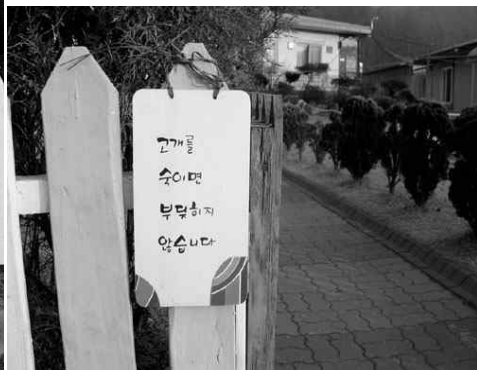 고개를
숙이면
부딪히지
않습니다